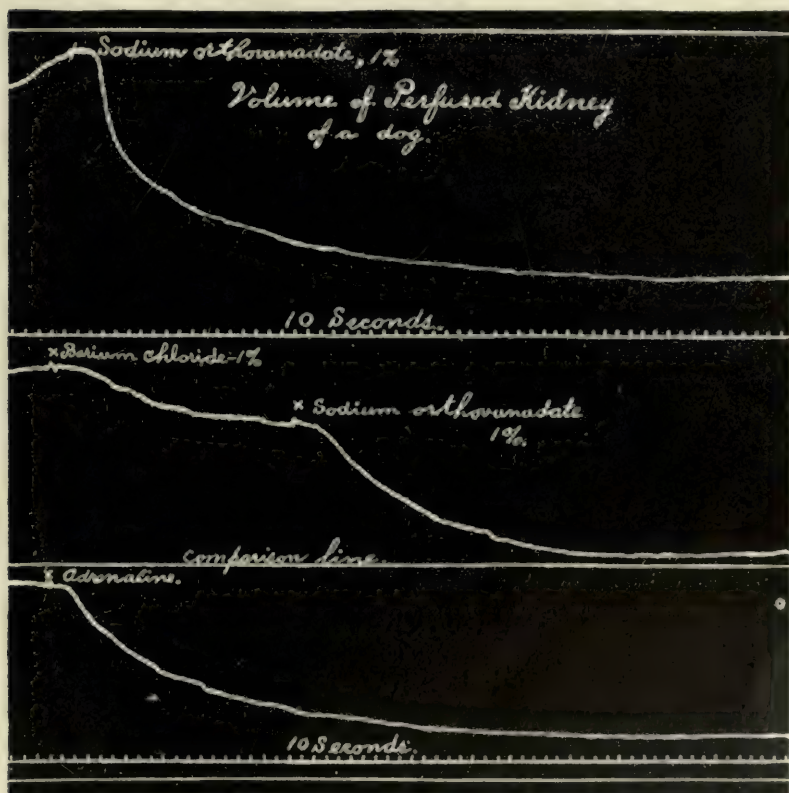 Sodium orthovanadate, 1%
Volume of Perfused Kidney
of a dog.
10 Seconds.
x Barium chloride-1%
x Sodium orthovanadate
1%.
comparison line.
x Adrenaline.
10 Seconds.